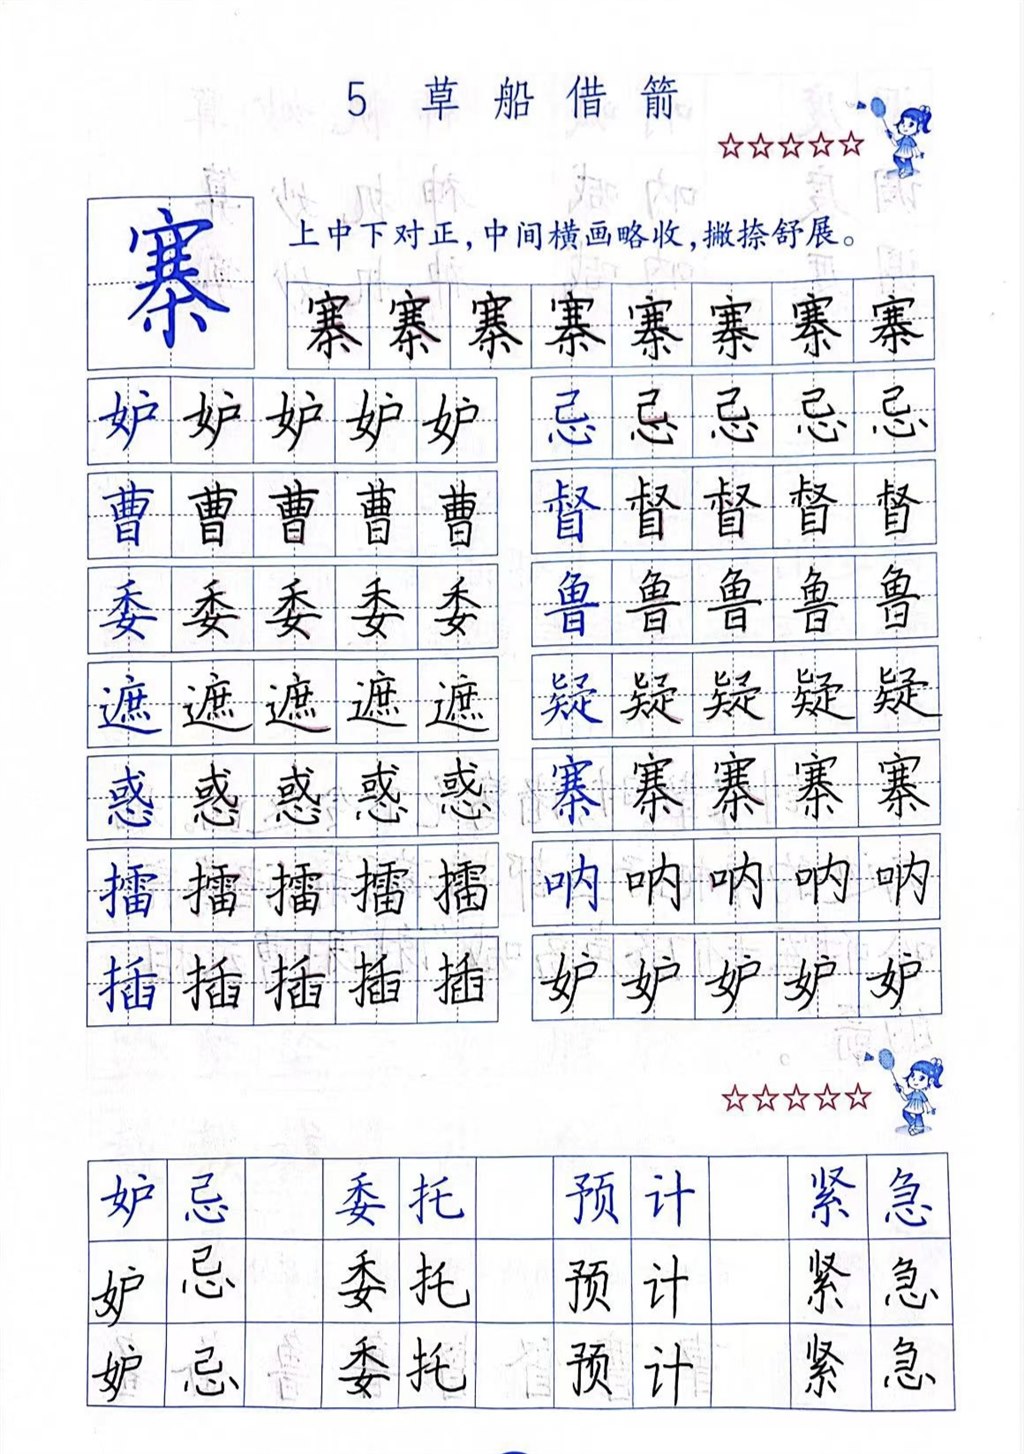 5 草船借箭
寨
上中下对正，中间横画略收，撇捺舒展。
寨寨寨寨寨寨寨寨
妒妒妒妒妒 忌忌忌忌忌
曹曹曹曹曹 督督督督督
委委委委委 鲁鲁鲁鲁鲁
遮遮遮遮遮 疑疑疑疑疑
惑惑惑惑惑 寨寨寨寨寨
擂擂擂擂擂 呐呐呐呐呐
插插插插插 妒妒妒妒妒
妒忌 委托 预计 紧急
妒忌 委托 预计 紧急
妒忌 委托 预计 紧急